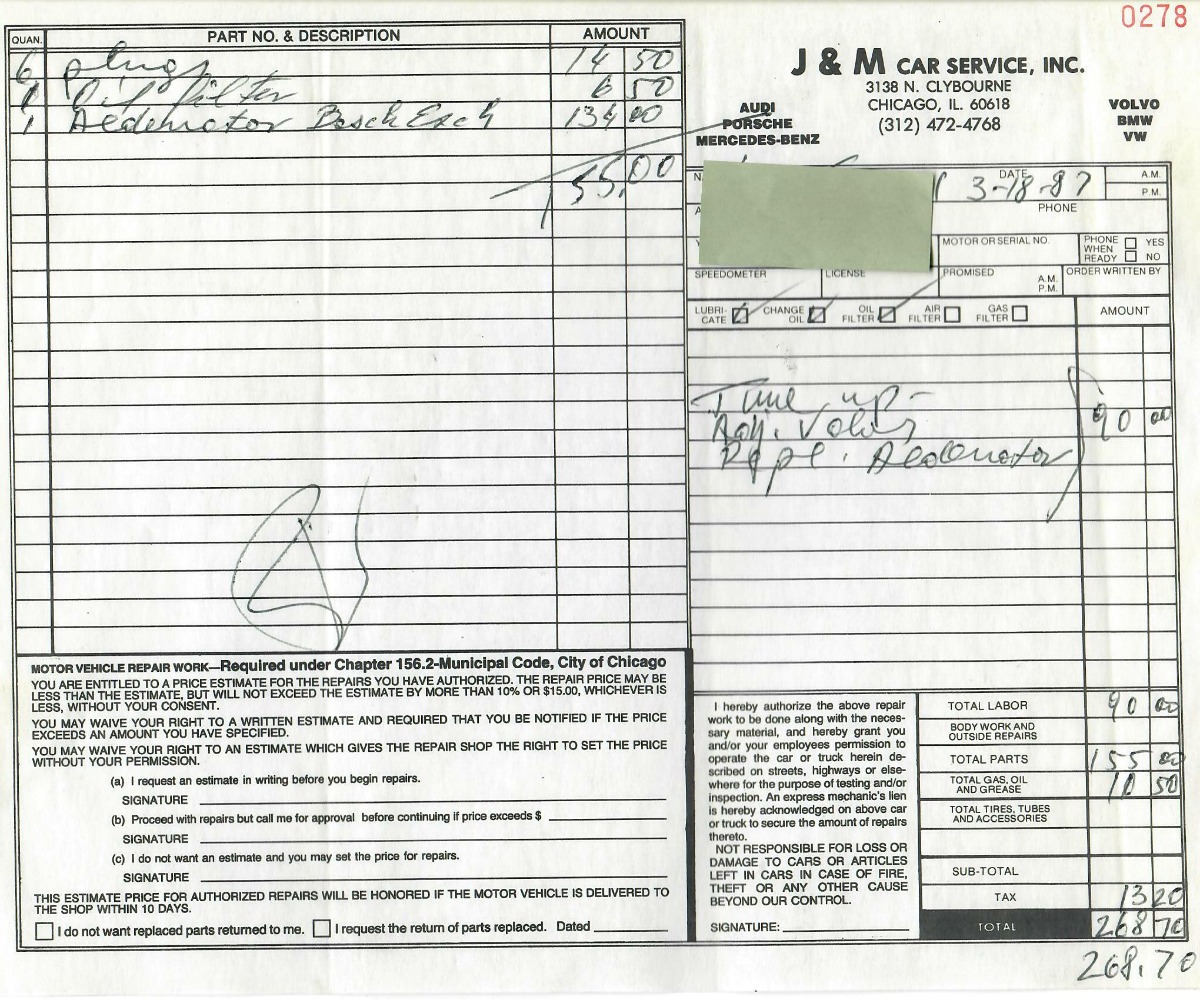 0278
QUAN. PART NO. & DESCRIPTION AMOUNT
6 plugs 14 50
1 Oil filter 6 50
1 Bosch Exch 134 00
155.00
J & M CAR SERVICE, INC.
3138 N. CLYBOURNE
CHICAGO, IL. 60618
(312) 472-4768
AUDI
PORSCHE
MERCEDES-BENZ
VOLVO
BMW
VW
DATE 3-18-87 A.M.
P.M.
PHONE
MOTOR OR SERIAL NO. PHONE WHEN READY YES NO
SPEEDOMETER LICENSE PROMISED A.M. P.M. ORDER WRITTEN BY
LUBRI-CATE CHANGE OIL OIL FILTER AIR FILTER GAS FILTER AMOUNT
Tune up -
Adj. Valvs 90 00
Repl.
MOTOR VEHICLE REPAIR WORK—Required under Chapter 156.2-Municipal Code, City of Chicago
YOU ARE ENTITLED TO A PRICE ESTIMATE FOR THE REPAIRS YOU HAVE AUTHORIZED. THE REPAIR PRICE MAY BE
LESS THAN THE ESTIMATE, BUT WILL NOT EXCEED THE ESTIMATE BY MORE THAN 10% OR $15.00, WHICHEVER IS
LESS, WITHOUT YOUR CONSENT.
YOU MAY WAIVE YOUR RIGHT TO A WRITTEN ESTIMATE AND REQUIRED THAT YOU BE NOTIFIED IF THE PRICE
EXCEEDS AN AMOUNT YOU HAVE SPECIFIED.
YOU MAY WAIVE YOUR RIGHT TO AN ESTIMATE WHICH GIVES THE REPAIR SHOP THE RIGHT TO SET THE PRICE
WITHOUT YOUR PERMISSION.
(a) I request an estimate in writing before you begin repairs.
SIGNATURE
(b) Proceed with repairs but call me for approval before continuing if price exceeds $
SIGNATURE
(c) I do not want an estimate and you may set the price for repairs.
SIGNATURE
THIS ESTIMATE PRICE FOR AUTHORIZED REPAIRS WILL BE HONORED IF THE MOTOR VEHICLE IS DELIVERED TO
THE SHOP WITHIN 10 DAYS.
I do not want replaced parts returned to me. I request the return of parts replaced. Dated
I hereby authorize the above repair
work to be done along with the neces-
sary material, and hereby grant you
and/or your employees permission to
operate the car or truck herein de-
scribed on streets, highways or else-
where for the purpose of testing and/or
inspection. An express mechanic's lien
is hereby acknowledged on above car
or truck to secure the amount of repairs
thereto.
NOT RESPONSIBLE FOR LOSS OR
DAMAGE TO CARS OR ARTICLES
LEFT IN CARS IN CASE OF FIRE,
THEFT OR ANY OTHER CAUSE
BEYOND OUR CONTROL.
SIGNATURE:
TOTAL LABOR 90 00
BODY WORK AND
OUTSIDE REPAIRS
TOTAL PARTS 155 00
TOTAL GAS, OIL
AND GREASE 10 50
TOTAL TIRES, TUBES
AND ACCESSORIES
SUB-TOTAL
TAX 13 20
TOTAL 268 70
268.70